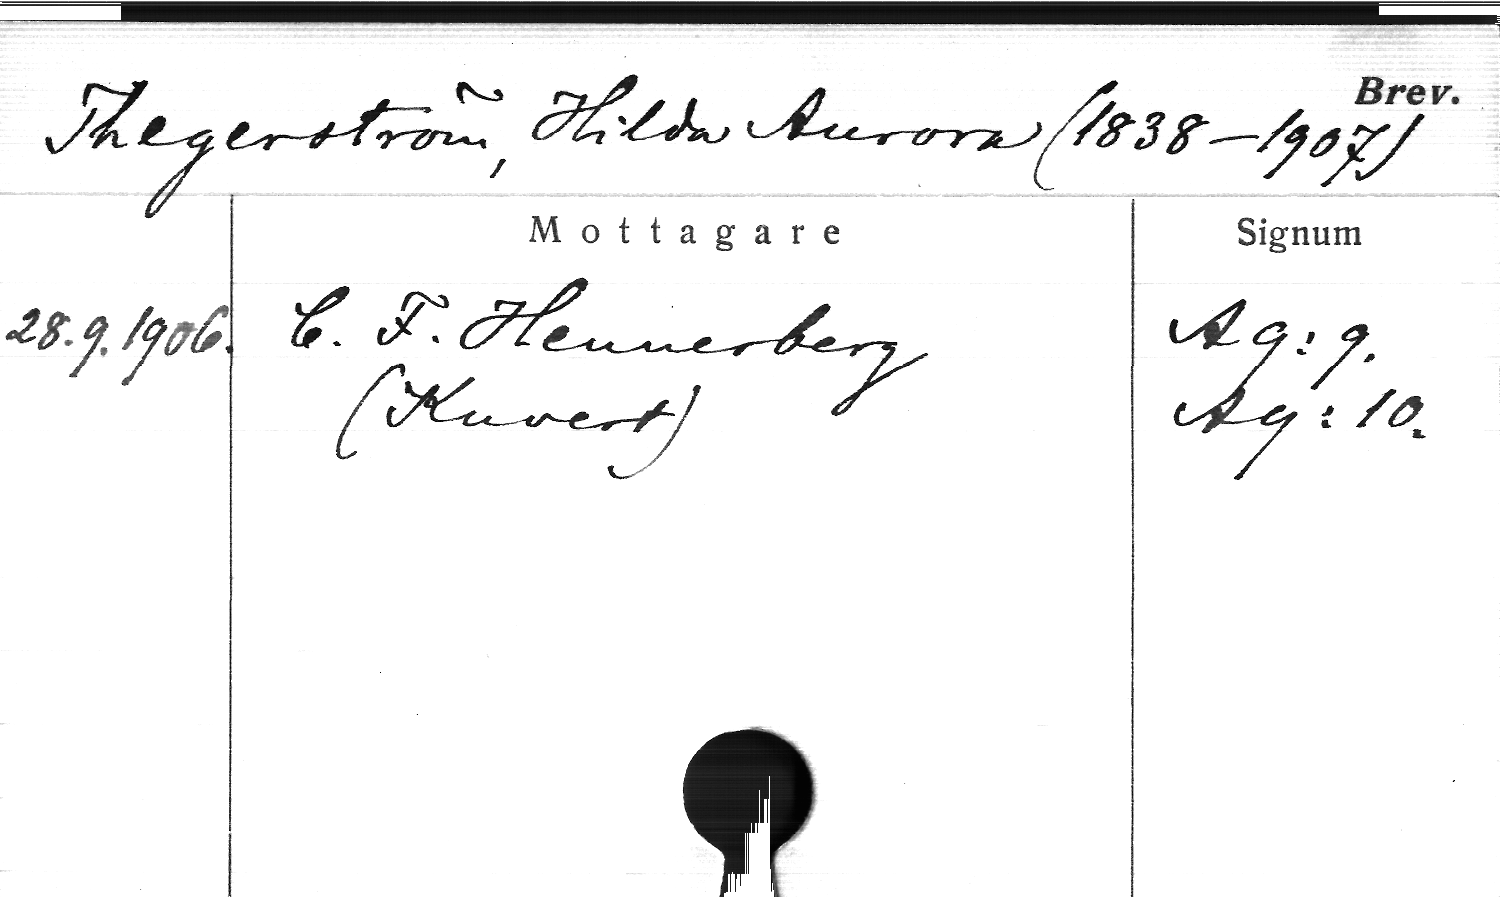 Brev.
Thegerström, Hilda Aurora (1838–1907)
Mottagare Signum
28.9.1906. C. F. Hennerberg Ag: 9.
(Kuvert) Ag: 10.